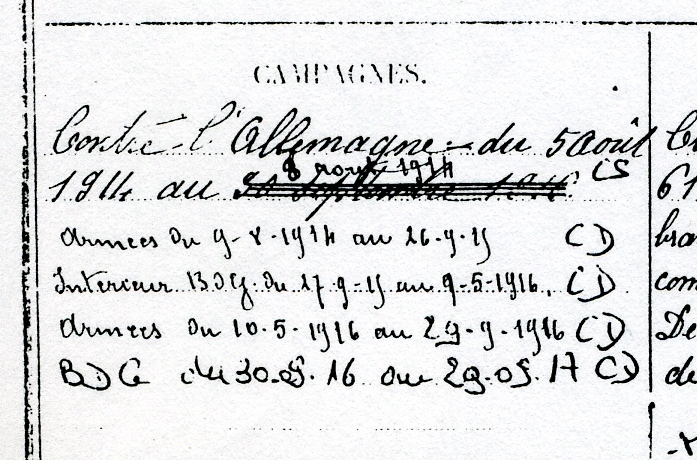 CAMPAGNES.
Contre l'Allemagne - du 5 août
8 août 1914
1914 au 30 septembre CS
Armées du 9-8-1914 au 26-9-15 CD
Intérieur BDG. du 27-9-15 au 9-5-1916. CD
Armées du 10-5-1916 au 29-9-1916 CD
BDG du 30.09.16 au 29.09.17 CD
61
bra
com
De
de